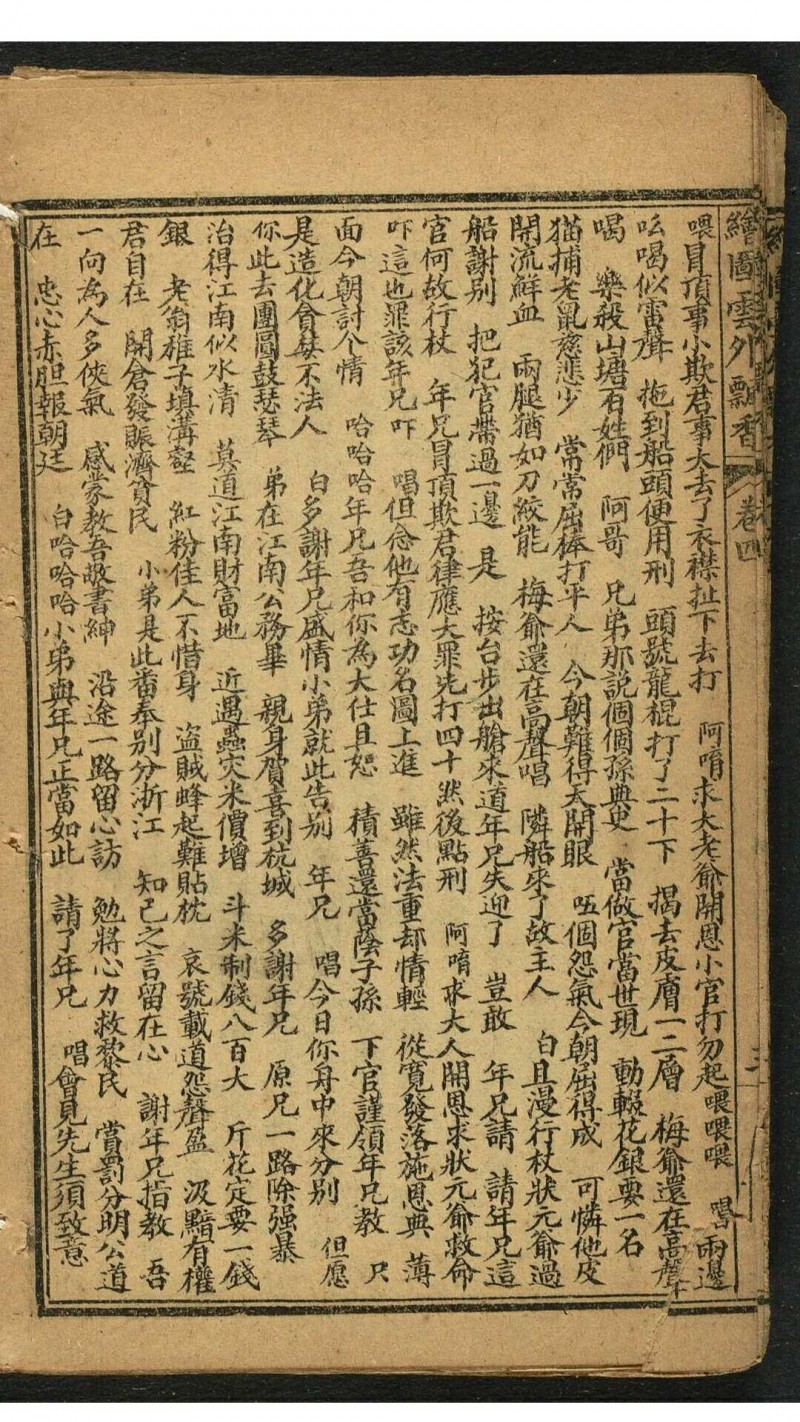 繪圖雲外飄香 卷四 三
喂冒頂事小欺君事大去了衣襟扯下去打 阿唷求大老爺開恩小官打勿起喂喂喂 唱兩邊
吆喝似雷聲 拖到船頭便用刑 頭號龍棍打了二十下 揭去皮膚一二層 梅爺還在高聲
喝 樂殺山塘百姓們 阿哥 兄弟那說個個孫典史 當做官當世現 動輟花銀要一名
猶捕老鼠慈悲少 常常屈棒打平人 今朝難得天開眼 呸個怨氣今朝屈得成 可憐他皮
開流鮮血 兩腿猶如刀絞能 梅爺還在高聲唱 隣船來了故主人 白且漫行杖狀元爺過
船謝別 把犯官帶過一邊 是 按台步出艙來道年兄失迎了 豈敢 年兄請 請年兄這
官何故行杖 年兄冒頂欺君律應大罪先打四十然後點刑 阿唷求大人開恩求狀元爺救命
吓這也罪該年兄吓 唱但念他有志功名圖上進 雖然法重却情輕 從寬發落施恩典 薄
面今朝討个情 哈哈哈年兄吾和你為大仕且恕 積善還當蔭子孫 下官謹領年兄教 只
是造化會棼不法人 白多謝年兄盛情小弟就此告别 年兄 唱今日你舟中來分别 但愿
你此去團圓鼓瑟琴 弟在江南公務畢 親身賀喜到杭城 多謝年兄 原兄一路除强暴
治得江南似水清 莫道江南財富地 近遇蟲灾米價增 斗米制錢八百大 斤花定要一錢
銀 老翁稚子填溝壑 紅粉佳人不惜身 盗賊蜂起難貼枕 哀號載道怨聲盈 汲黯有權
君自在 開倉發賑濟貧民 小弟是此番奉别分浙江 知已之言留在心 謝年兄指教 吾
一向為人多俠氣 感蒙教吾敬書紳 沿途一路留心訪 勉將心力救黎民 賞罰分明公道
在 忠心赤胆報朝廷 白哈哈哈小弟與年兄正當如此 請了年兄 唱會見先生須致意